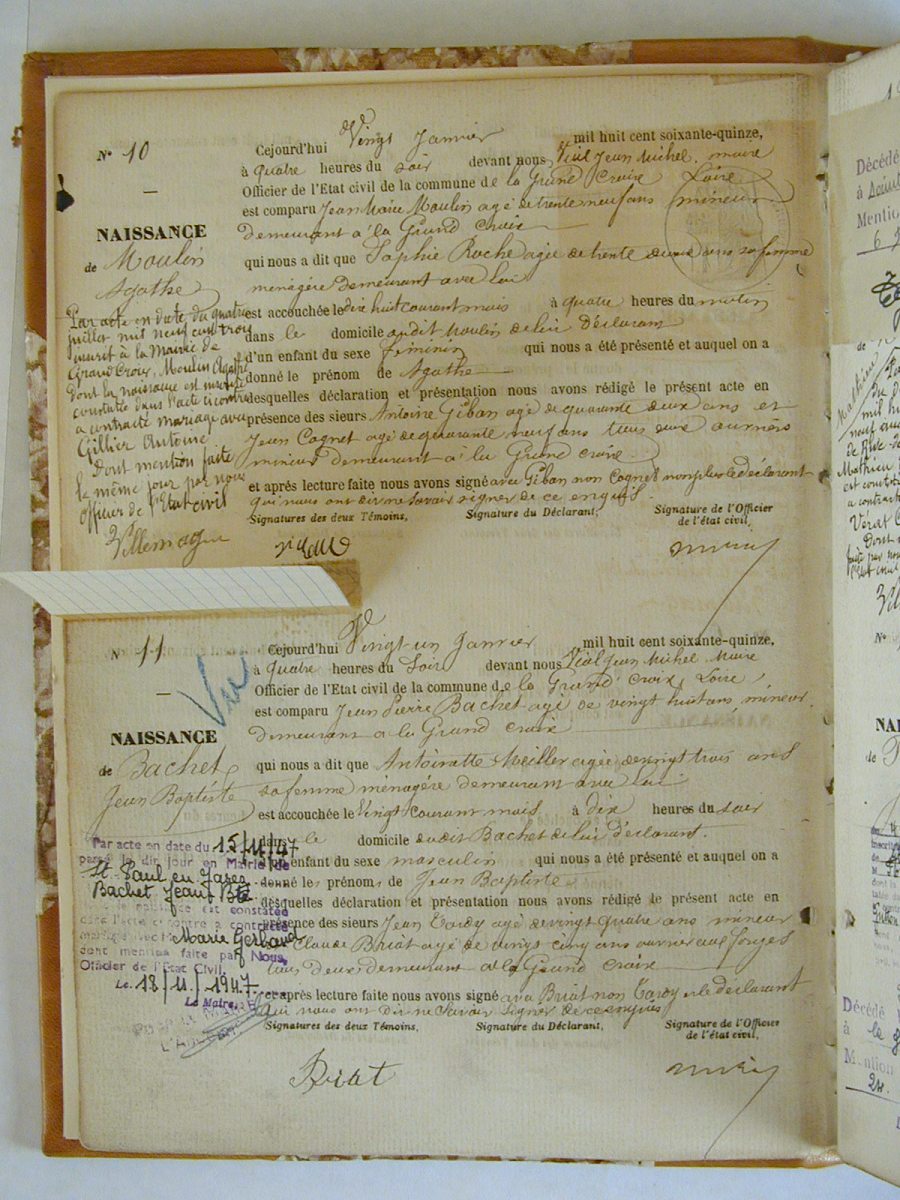 N° 10
NAISSANCE
de Moulin
Agathe
Par acte en date du quatre
juillet mil neuf cent trois
inscrit à la Mairie de
Grand Croix, Moulin Agathe
dont la naissance est inscrite
constatée dans l'acte ci contre
a contracté mariage avec
Gillier Antoine
Dont mention faite
le même jour par nous
Officier de l'Etat civil
Villemagne
Cejourd'hui Vingt Janvier mil huit cent soixante-quinze,
à quatre heures du soir devant nous Vial Jean Michel maire
Officier de l'Etat civil de la commune de la Grand Croix Loire
est comparu Jean Marie Moulin agé de trente neuf ans mineur
demeurant à la Grand Croix
qui nous a dit que Sophie Roche agée de trente deux ans sa femme
ménagère demeurant avec lui
est accouchée le dix huit courant mois à quatre heures du matin
dans le domicile audit Moulin de lui déclarant
d'un enfant du sexe feminin qui nous a été présenté et auquel on a
donné le prénom de Agathe
desquelles déclaration et présentation nous avons rédigé le présent acte en
présence des sieurs Antoine Giban agé de quarante deux ans et
Jean Cognet agé de quarante neuf ans tous deux
mineurs demeurant à la Grand Croix
et après lecture faite nous avons signé avec Giban non Cognet non plus le déclarant
qui nous ont dit ne savoir signer de ce enquis.
Signatures des deux Témoins, Signature du Déclarant, Signature de l'Officier
de l'état civil,
N° 11
Vu
NAISSANCE
de Bachet
Jean Baptiste
Par acte en date du 15/11/47
passé le dit jour en Mairie de
St. Paul en Jarez
Bachet Jean Bte
dont la naissance est constatée
dans l'acte ci contre a contracté
mariage avec Marie Gerbaud
dont mention faite par Nous,
Officier de l'Etat Civil,
Le 18/11/1947
Le Maire,
Cejourd'hui Vingt-un Janvier mil huit cent soixante-quinze,
à quatre heures du Soir devant nous Vial Jean Michel Maire
Officier de l'Etat civil de la commune de la Grand Croix Loire,
est comparu Jean Pierre Bachet agé de vingt huit ans, mineur
demeurant a la Grand Croix
qui nous a dit que Antoinette Meiller agée de vingt trois ans
sa femme ménagère demeurant avec lui
est accouchée le Vingt courant mois à dix heures du soir
dans le domicile dudit Bachet de lui déclarant.
d'un enfant du sexe masculin qui nous a été présenté et auquel on a
donné les prénoms de Jean Baptiste
desquelles déclaration et présentation nous avons rédigé le présent acte en
présence des sieurs Jean Tardy agé de vingt quatre ans mineur
Claude Briat agé de vingt cinq ans ouvrier aux forges
tous deux demeurant a la Grand Croix
et après lecture faite nous avons signé avec Briat non Tardy et le déclarant
qui nous ont dit ne savoir signer de ce enquis
Signatures des deux Témoins, Signature du Déclarant, Signature de l'Officier
de l'état civil,
Briat
Décédé
à
Mention
Décédé
à
Mention
24